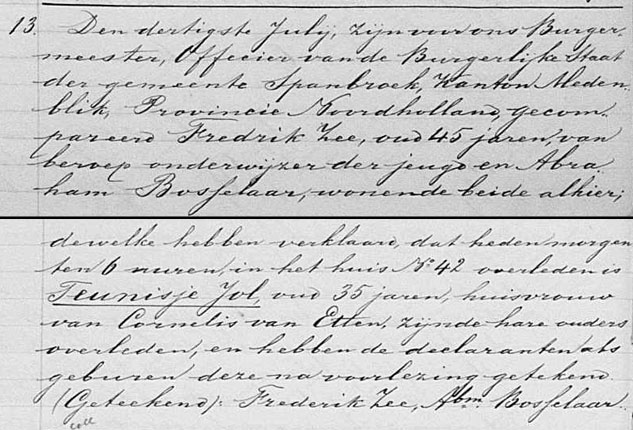 13. Den dertigste July, zijn voor ons Burger-
meester, Officier van de Burgerlijke Staat
der gemeente Spanbroek, Kanton Meden-
blik, Provincie Noordholland, gecom-
pareerd Fredrik Zee, oud 45 jaren, van
beroep onderwijzer der jeugd en Abra
ham Bosselaar, wonende beide alhier;
dewelke hebben verklaard, dat heden morgen
ten 6 uuren, in het huis No 42 overleden is
Teunisje Jol, oud 35 jaren, huisvrouw
van Cornelis van Etten, zijnde hare ouders
overleden, en hebben de declaranten als
geburen deze na voorlezing getekend.
(Geteekend): Frederik Zee, Abm Bosselaar.
coll